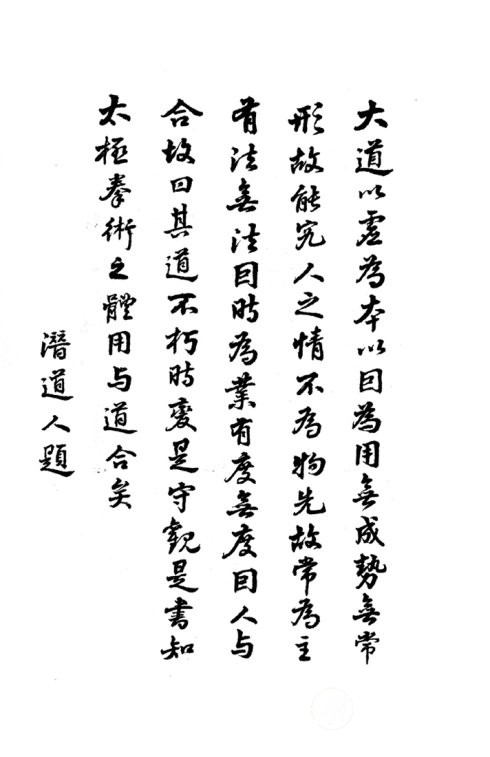 大道以虛為本以因為用無成勢無常
形故能究人之情不為物先故常為主
有法無法因時為業有度無度因人与
合故曰其道不朽時變是守觀是書知
太極拳術之體用与道合矣
潛道人題